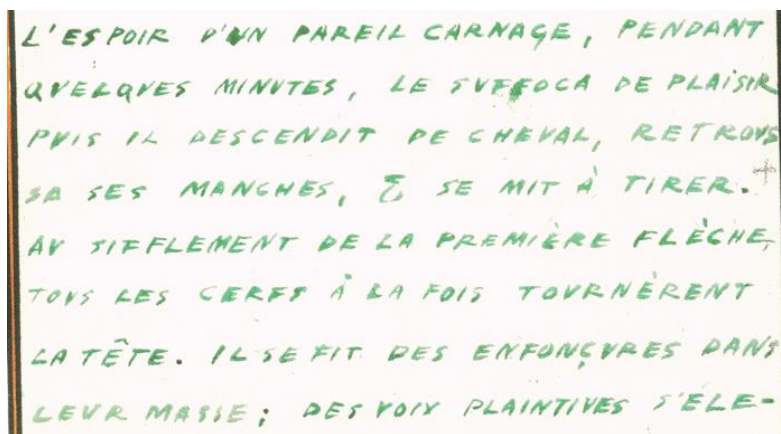 L'ESPOIR D'UN PAREIL CARNAGE, PENDANT
QVELQVES MINVTES, LE SVFFOCA DE PLAISIR
PVIS IL DESCENDIT DE CHEVAL, RETROVS
SA SES MANCHES, & SE MIT À TIRER.
AV SIFFLEMENT DE LA PREMIÈRE FLÈCHE,
TOVS LES CERFS À LA FOIS TOVRNÈRENT
LA TÊTE. IL SE FIT DES ENFONÇVRES DANS
LEVR MASSE; DES VOIX PLAINTIVES S'ÉLE-